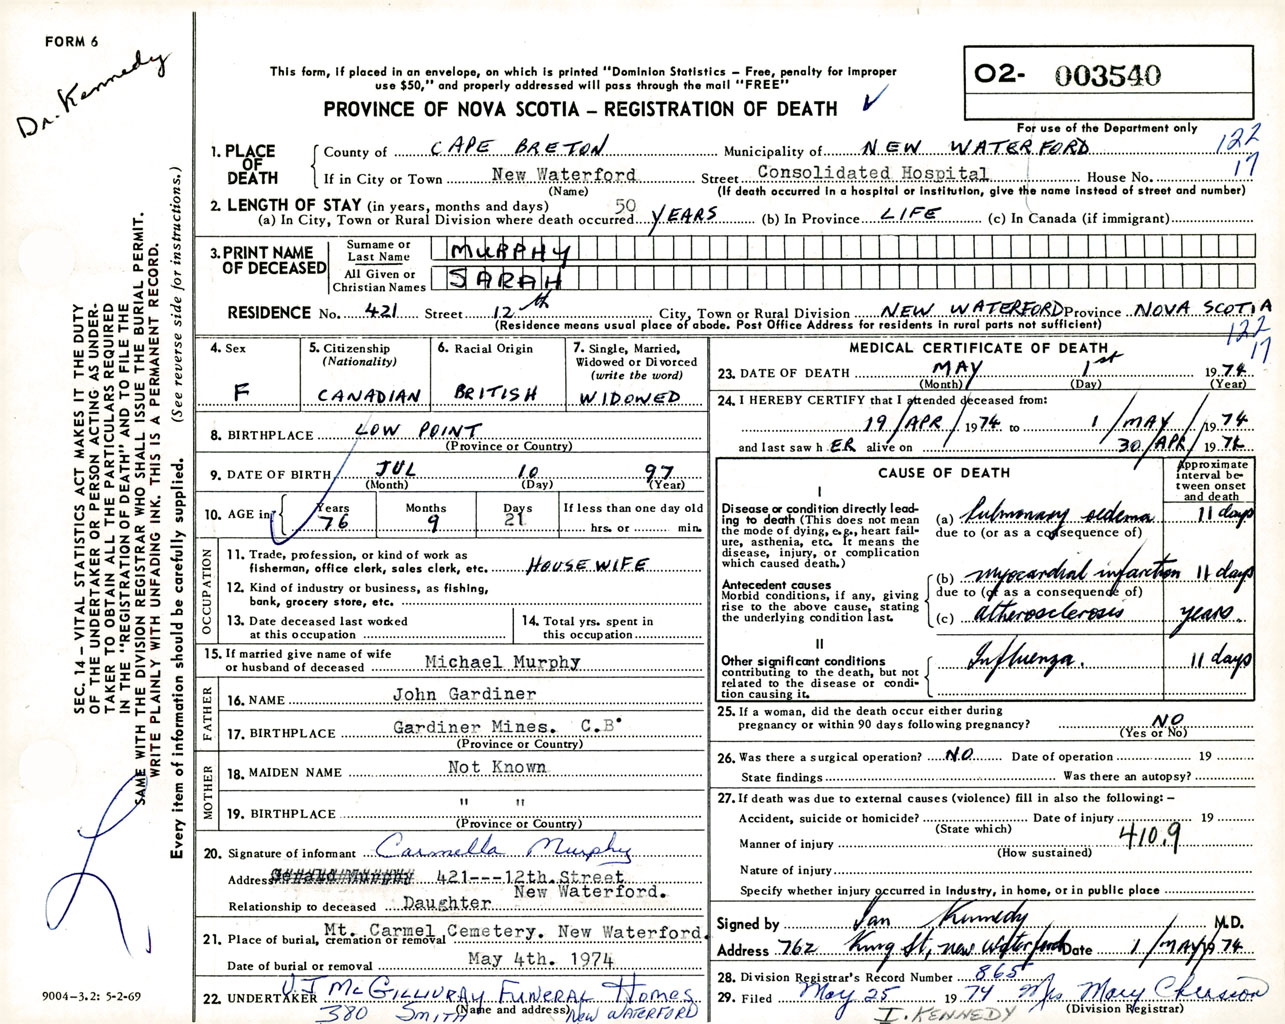 FORM 6
Dr. Kennedy
This form, if placed in an envelope, on which is printed "Dominion Statistics – Free, penalty for improper
use $50," and properly addressed will pass through the mail "FREE"
PROVINCE OF NOVA SCOTIA – REGISTRATION OF DEATH
O2- 003540
For use of the Department only
122
17
1. PLACE OF DEATH
County of CAPE BRETON Municipality of NEW WATERFORD
If in City or Town New Waterford Street Consolidated Hospital House No.
(Name) (If death occurred in a hospital or institution, give the name instead of street and number)
2. LENGTH OF STAY (in years, months and days)
(a) In City, Town or Rural Division where death occurred 50 YEARS (b) In Province LIFE (c) In Canada (if immigrant)
3. PRINT NAME OF DECEASED
Surname or Last Name MURPHY
All Given or Christian Names SARAH
RESIDENCE No. 421 Street 12th City, Town or Rural Division NEW WATERFORD Province NOVA SCOTIA
(Residence means usual place of abode. Post Office Address for residents in rural parts not sufficient)
122
17
4. Sex
F
5. Citizenship
(Nationality)
CANADIAN
6. Racial Origin
BRITISH
7. Single, Married,
Widowed or Divorced
(write the word)
WIDOWED
8. BIRTHPLACE LOW POINT
(Province or Country)
9. DATE OF BIRTH JUL 10 97
(Month) (Day) (Year)
10. AGE in
Years Months Days If less than one day old
76 9 21 hrs. or min.
OCCUPATION
11. Trade, profession, or kind of work as
fisherman, office clerk, sales clerk, etc. HOUSEWIFE
12. Kind of industry or business, as fishing,
bank, grocery store, etc.
13. Date deceased last worked
at this occupation
14. Total yrs. spent in
this occupation
15. If married give name of wife
or husband of deceased Michael Murphy
FATHER
16. NAME John Gardiner
17. BIRTHPLACE Gardiner Mines. C.B.
(Province or Country)
MOTHER
18. MAIDEN NAME Not Known
19. BIRTHPLACE " "
(Province or Country)
20. Signature of informant Carmella Murphy
Address 421---12th.Street
New Waterford.
Relationship to deceased Daughter
21. Place of burial, cremation or removal Mt. Carmel Cemetery. New Waterford.
Date of burial or removal May 4th. 1974
22. UNDERTAKER V J McGILLIVRAY FUNERAL HOMES
(Name and address)
380 SMITH NEW WATERFORD
MEDICAL CERTIFICATE OF DEATH
23. DATE OF DEATH MAY 1st 1974
(Month) (Day) (Year)
24. I HEREBY CERTIFY that I attended deceased from:
19 / APR / 1974 to 1 / MAY / 1974
and last saw h ER alive on 30 / APR / 1974
CAUSE OF DEATH
Approximate
interval be-
tween onset
and death
I
Disease or condition directly lead-
ing to death (This does not mean
the mode of dying, e.g., heart fail-
ure, asthenia, etc. It means the
disease, injury, or complication
which caused death.)
(a) Pulmonary oedema 11 days
due to (or as a consequence of)
Antecedent causes
Morbid conditions, if any, giving
rise to the above cause, stating
the underlying condition last.
(b) myocardial infarction 11 days
due to (or as a consequence of)
(c) atherosclerosis years.
II
Other significant conditions
contributing to the death, but not
related to the disease or condi-
tion causing it.
Influenza. 11 days
25. If a woman, did the death occur either during
pregnancy or within 90 days following pregnancy? NO
(Yes or No)
26. Was there a surgical operation? NO Date of operation 19
State findings Was there an autopsy?
27. If death was due to external causes (violence) fill in also the following: –
Accident, suicide or homicide? Date of injury 19
(State which)
410.9
Manner of injury
(How sustained)
Nature of injury
Specify whether injury occurred in industry, in home, or in public place
Signed by Ian Kennedy M.D.
Address 762 King St, New Waterford Date 1 / MAY / 1974
28. Division Registrar's Record Number 865
29. Filed May 25 1974 Mrs Mary
(Division Registrar)
I. KENNEDY
SEC. 14 – VITAL STATISTICS ACT MAKES IT THE DUTY
OF THE UNDERTAKER OR PERSON ACTING AS UNDER-
TAKER TO OBTAIN ALL THE PARTICULARS REQUIRED
IN THE "REGISTRATION OF DEATH" AND TO FILE THE
SAME WITH THE DIVISION REGISTRAR WHO SHALL ISSUE THE BURIAL PERMIT.
WRITE PLAINLY WITH UNFADING INK. THIS IS A PERMANENT RECORD.
Every item of information should be carefully supplied. (See reverse side for instructions.)
9004-3.2: 5-2-69